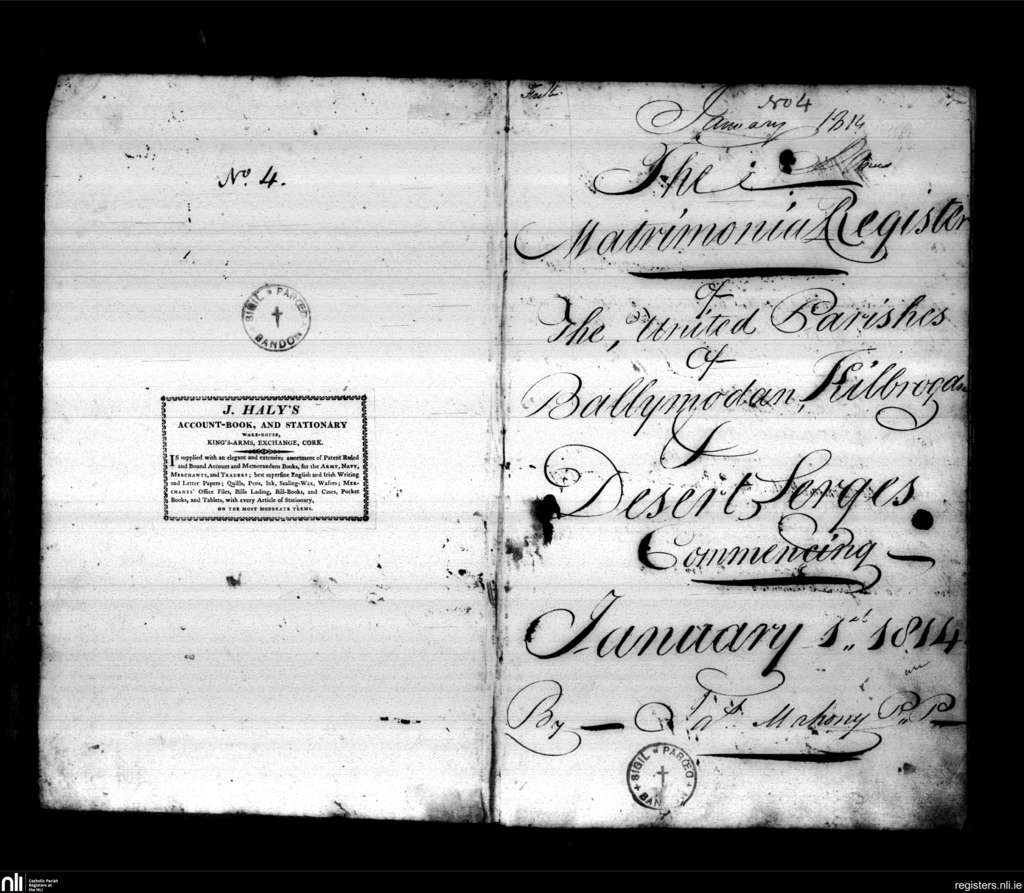 No. 4.
SIGIL * PAROEO
BANDON
J. HALY'S
ACCOUNT-BOOK, AND STATIONARY
WARE-HOUSE,
KING'S-ARMS, EXCHANGE, CORK.
IS supplied with an elegant and extensive assortment of Patent Ruled
and Bound Account and Memorandum Books, for the ARMY, NAVY,
MERCHANTS, and TRADERS; best superfine English and Irish Writing
and Letter Papers; Quills, Pens, Ink, Sealing-Wax, Wafers; MER-
CHANTS' Office Files, Bills Lading, Bill-Books, and Cases, Pocket
Books, and Tablets, with every Article of Stationary,
ON THE MOST MODERATE TERMS.
No 4
January 1814
The
Matrimonial Register
of
The, United Parishes
Of
Ballymodan, Kilbrogan
&
Desert Serges
Commencing —
January 1st 1814
By — Mahony P. P—
SIGIL * PAROEO
BANDON
nli
Catholic Parish
Registers at
the NLI
registers.nli.ie